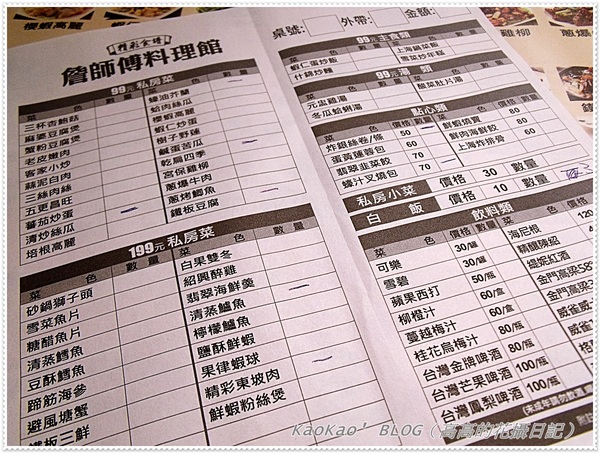 精彩食譜
詹師傅料理館
99元 私房菜
菜 色 數量 菜 色 數量
三杯杏鮑菇 蠔油芥蘭
麻婆豆腐煲 蛤肉絲瓜
蟹粉豆腐煲 櫻蝦高麗
老皮嫩肉 蝦仁炒蛋
客家小炒 樹子野蓮
蒜泥白肉 鹹蛋苦瓜
三絲肉絲 乾扁四季
五更昌旺 宮保雞柳
蕃茄炒蛋 蔥爆牛肉
清炒絲瓜 蔥烤鯽魚
培根高麗 鐵板豆腐
199元 私房菜
菜 色 數量 菜 色 數量
砂鍋獅子頭 白果雙冬
雪菜魚片 紹興醉雞
糖醋魚片 翡翠海鮮羹
清蒸鱈魚 清蒸鱸魚
豆酥鱈魚 檸檬鱸魚
蹄筋海參 鹽酥鮮蝦
避風塘蟹 果律蝦球
鐵板三鮮 精彩東坡肉
鮮蝦粉絲煲
桌號: 外帶: 金額:
99元主食類
蝦仁蛋炒飯 上海鍋菜飯
什錦炒麵 雪菜炒年糕
99元湯類
元盅雞湯 酸菜肚片湯
冬瓜蛤蜊湯
點心類
菜 色 價格 數量 菜 色 價格 數量
炸銀絲卷/條 50 鮮蝦燒賣
蛋黃蓮蓉包 60 鮮肉海鮮餃 60
翡翠韭菜餃 70 上海炸排骨 60
蠔汁叉燒包 70
私房小菜 價格 30 數量
白飯 價格 10 數量
飲料類
菜 色 價格 數量
可樂 30/罐
雪碧 30/罐
蘋果西打 50/瓶
柳橙汁 60/盒
蔓越梅汁 60/盒
桂花烏梅汁 80/瓶
台灣金牌啤酒 80/瓶
台灣芒果啤酒 100/瓶
台灣鳳梨啤酒 100/瓶
海尼根
精釀陳紹
緹妮紅酒
金門高梁58°
金門高梁
(未成年請勿飲酒
KaoKao' BLOG (高高的花攝日記)